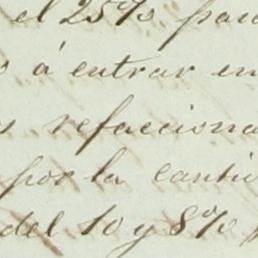 el 25%
á entrar en
refacciona
por la canti
del 10 y 8%